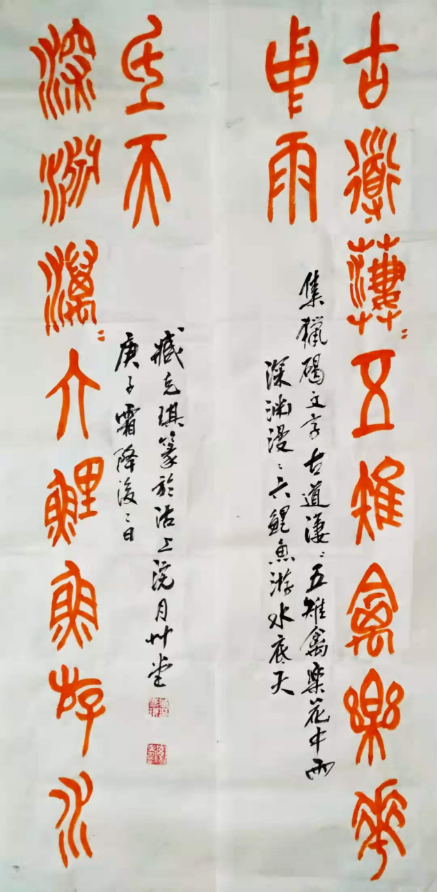 古道萋〻五雉禽樂華
中雨
集獵碣文字古道淒〻五雉禽樂花中雨
深淵漫〻六鯉魚游水底天
深淵漫〻六鯉魚游水
氐天
臧克琪篆於沽上浣月艸堂
庚子霜降後二日